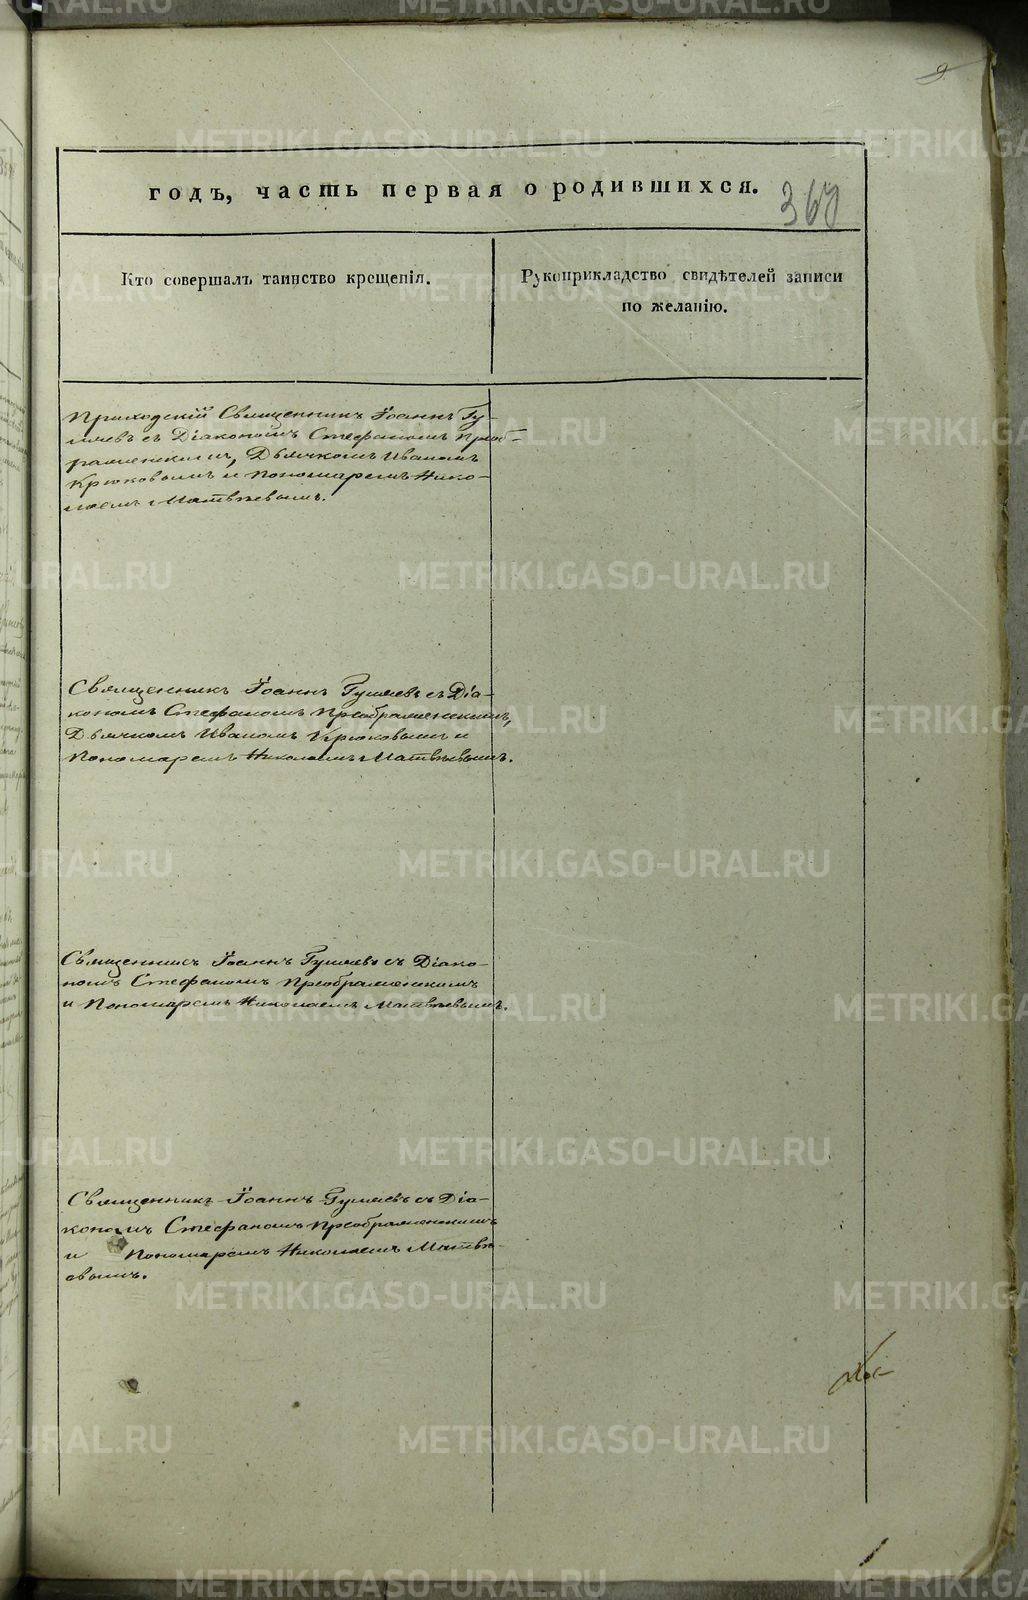 9
годъ, часть первая о родившихся.
Кто совершалъ таинство крещенія.
Рукоприкладство свидѣтелей записи
по желанію.
Приходскій Священникъ Іоаннъ Гу-
съ Діакономъ Стефаномъ Преоб-
раженскимъ, Дьячкомъ Иваномъ
Крюковымъ и Пономаремъ Нико-
лаемъ Матвѣевымъ.
Священникъ Іоаннъ Гуляевъ съ Діа-
кономъ Стефаномъ Преображенскимъ,
Дьячкомъ Иваномъ Крюковымъ и
Пономаремъ Николаемъ Матвѣевымъ.
Священникъ Іоаннъ Гуляевъ съ Діако-
номъ Стефаномъ Преображенскимъ
и Пономаремъ Николаемъ Матвѣевымъ.
Священникъ Іоаннъ Гуляевъ съ Діа-
кономъ Стефаномъ Преображенскимъ
и Пономаремъ Николаемъ Матвѣ-
евымъ.
METRIKI.GASO-URAL.RU